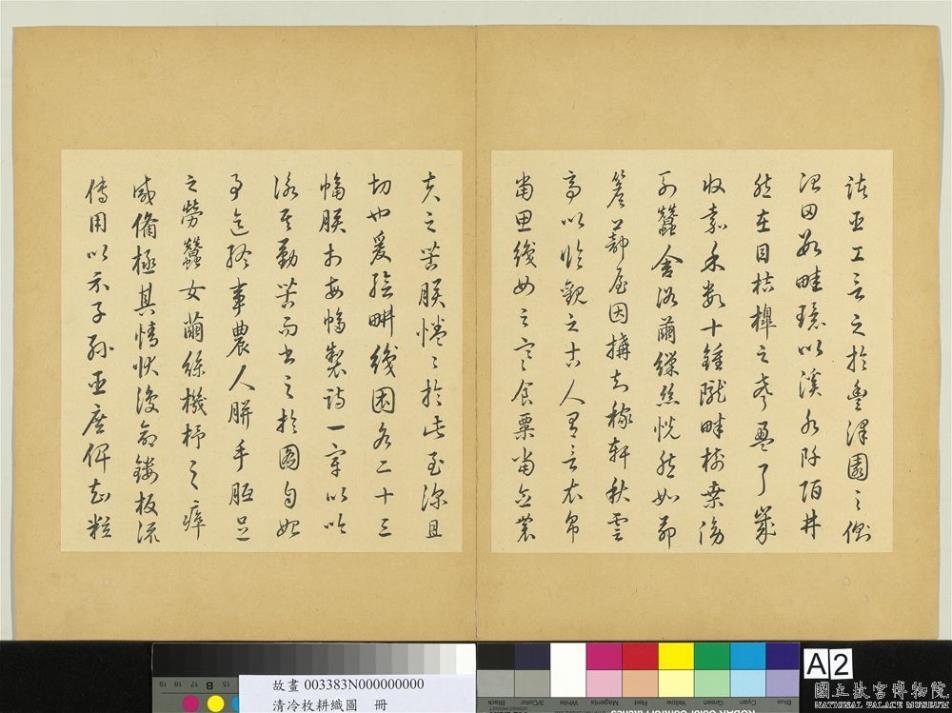 亟言之於豐澤園之側
治田數畦環以溪水阡陌井
然在目桔槔之聲盈耳歲
收嘉禾數十鍾隴畔樹桑傍
列蠶舍浴繭繅絲恍然如茆
簷蔀屋因搆知稼軒秋雲
亭以臨觀之古人有言衣帛
當思織女之寒食粟當念農
夫之苦朕惓惓於此至深且
切也爰繪耕織圖各二十三
幅朕於每幅製詩一章以吟
詠其勤苦而書之於圖自始
事迄終事農人胼手胝足
之勞蠶女繭絲機杼之瘁
咸備極其情狀復命鏤板流
傳用以示子孫臣庶俾知粒
故畫 003383N000000000
清冷枚耕織圖 冊
A2
國立故宮博物院
NATIONAL PALACE MUSEUM